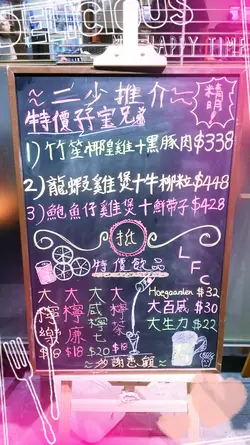 DELICIOUS
HAPPY TIME
~二少推介~
精明
特價孖寶兄弟
1) 竹笙椰皇雞+黑豚肉$338
2) 龍蝦雞煲+牛柳粒$448
3) 鮑魚仔雞煲+鮮帶子$428
特價飲品
LFC
大檸樂 $18
大檸廉 $18
大咸檸七 $20
大檸茶 $18
Hoegaarden $32
大百威 $30
大生力 $22
~多謝惠顧~